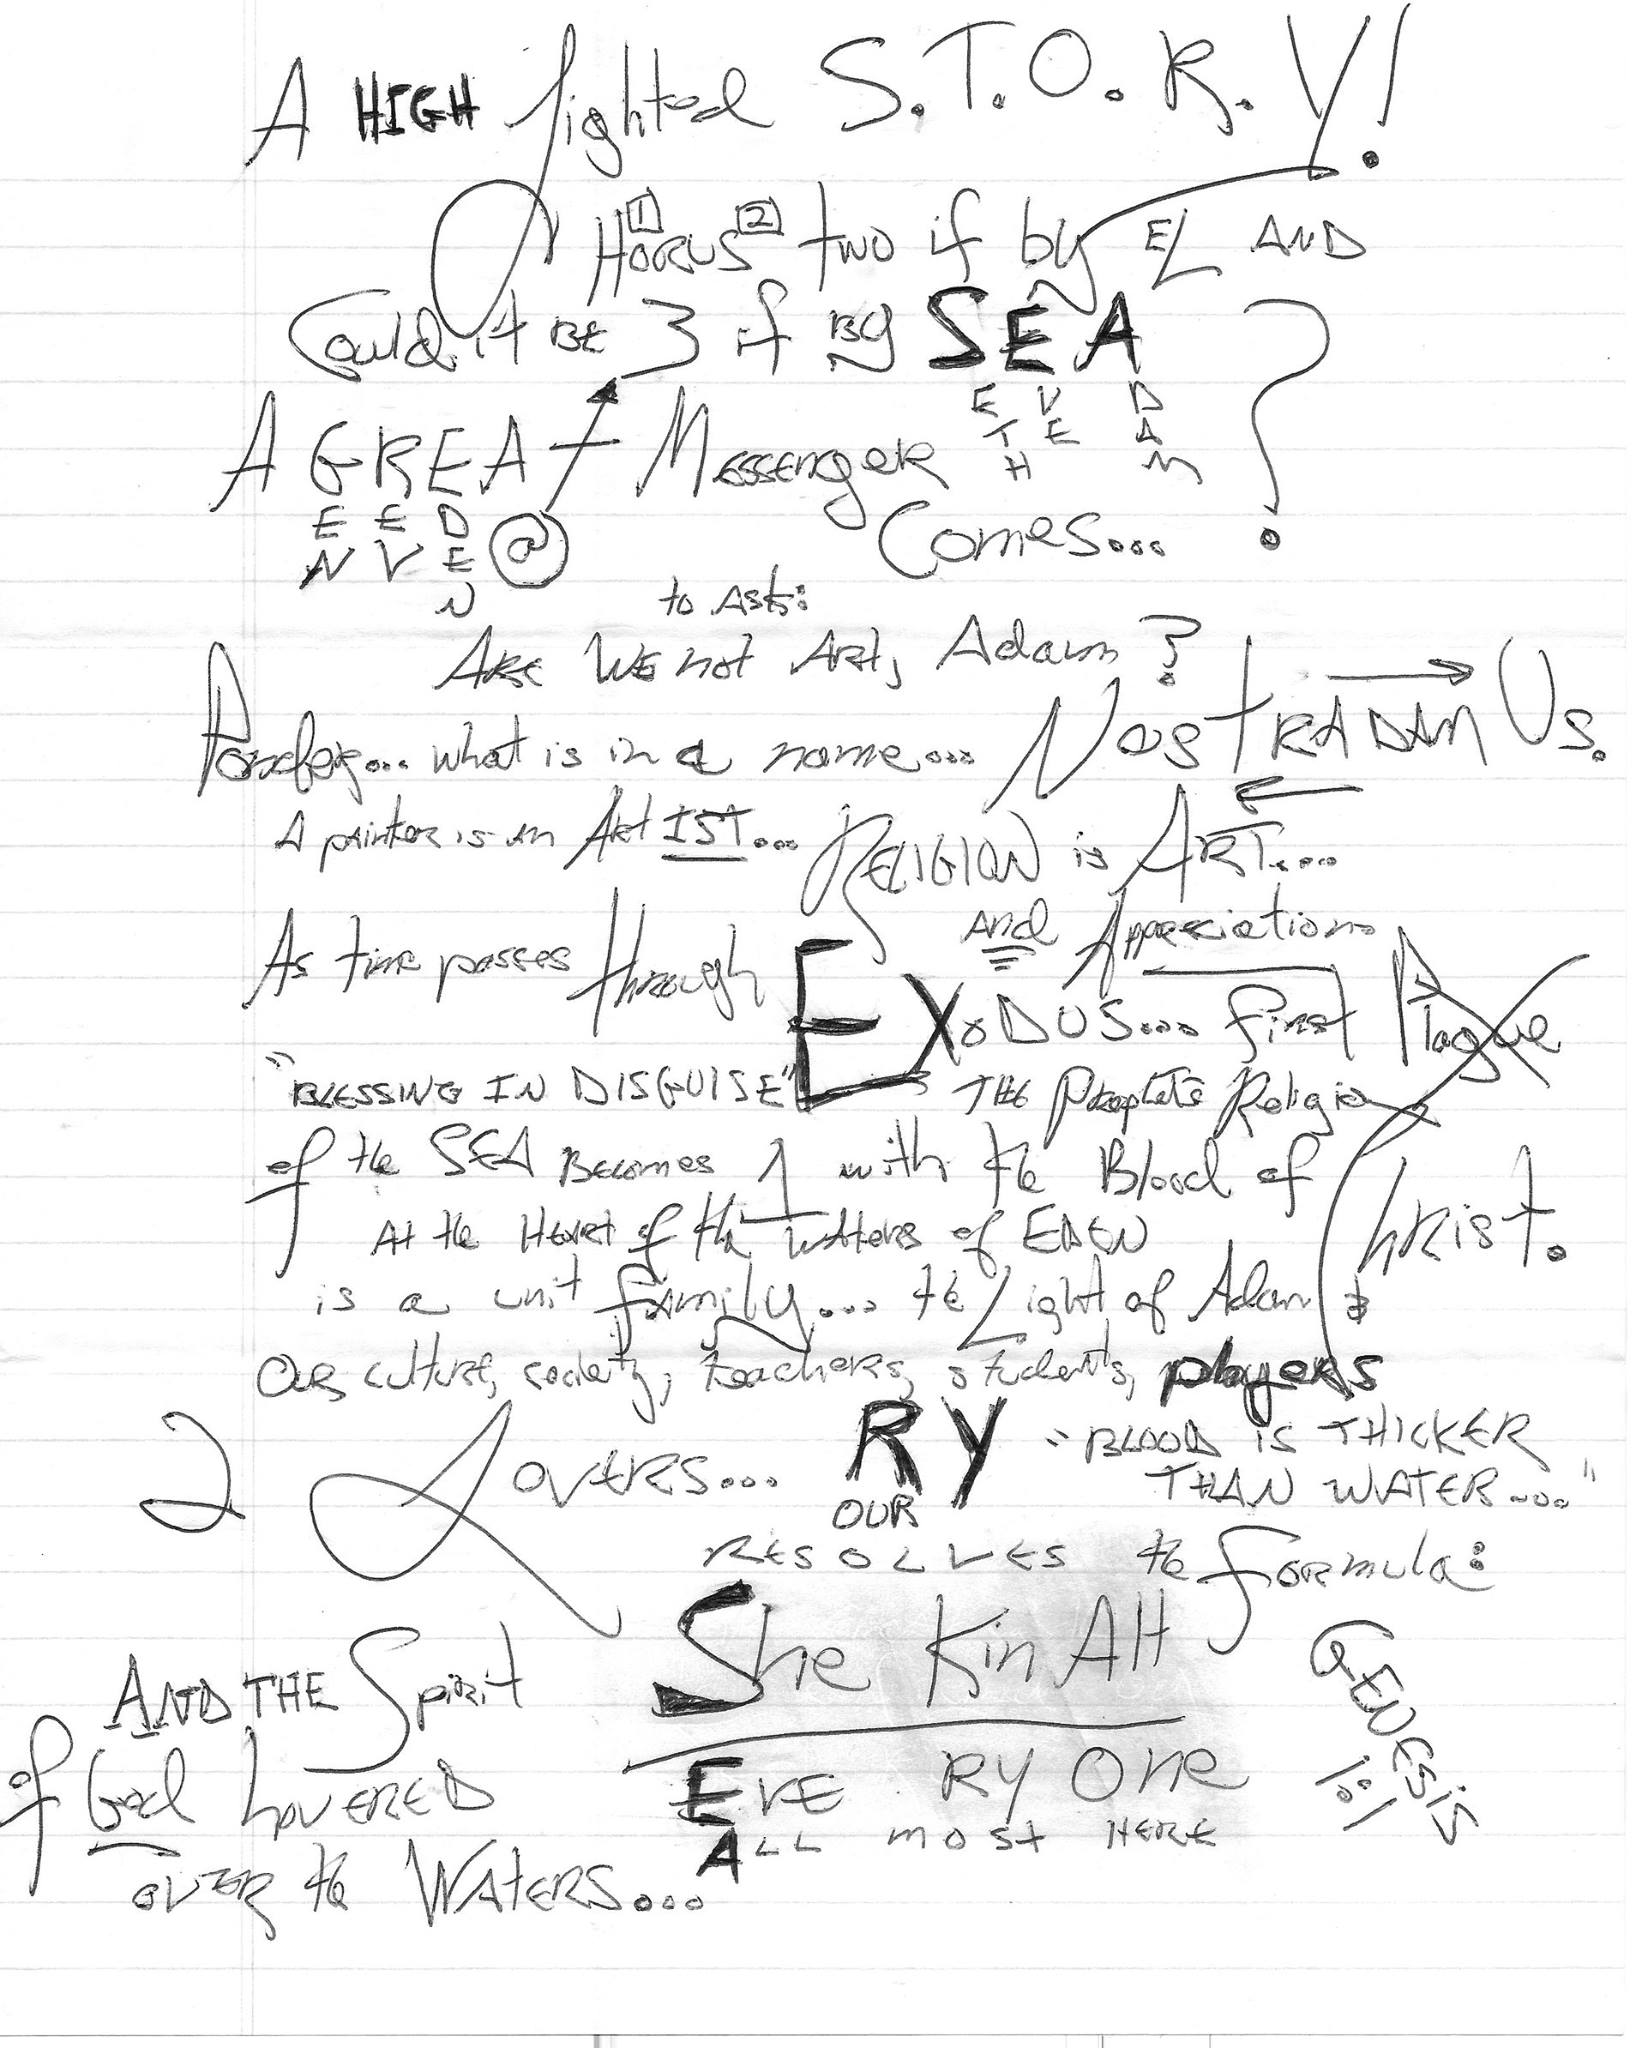 A HIGH lighted S.T.O.R.Y!
1 2
HORUS two if by EL AND
Could it BE 3 if By SEA ?
E V D
T E A
H M
A GREAT Messenger
E E D @
N V E
N
Comes...
to Ask:
ARE WE not ART, Adam?
Ponder... what is in a name... NosTRADAM Us.
A painter is an Art IST... RELIGION is ART....
And Appreciation
As time passes through EXODUS... first Plague
"BLESSING IN DISGUISE" THE Prophet's Religion
of the SEA Becomes 1 with the Blood of Christ.
At the Heart of the waters of EDEN
is a unit family... the Light of Adam &
Our culture, society, teachers, students, players
2 Lovers... RY "BLOOD is THICKER
THAN WATER...."
OUR
RESOLVES the formula:
She Kin AH
AND THE Spirit
of God hovered
over the WATERS...
EVE RY One
ALL MOST HERE
GENESIS
1:1